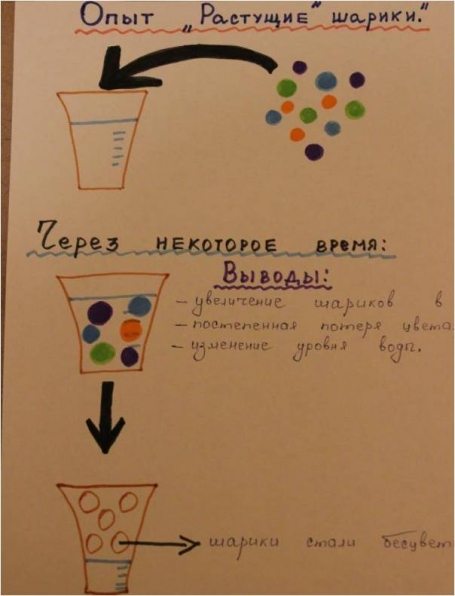 Опыт „Растущие" шарики."
Через некоторое время:
Выводы:
- увеличение шариков в
- постепенная потеря цвета.
- изменение уровня воды.
шарики стали бесцвет